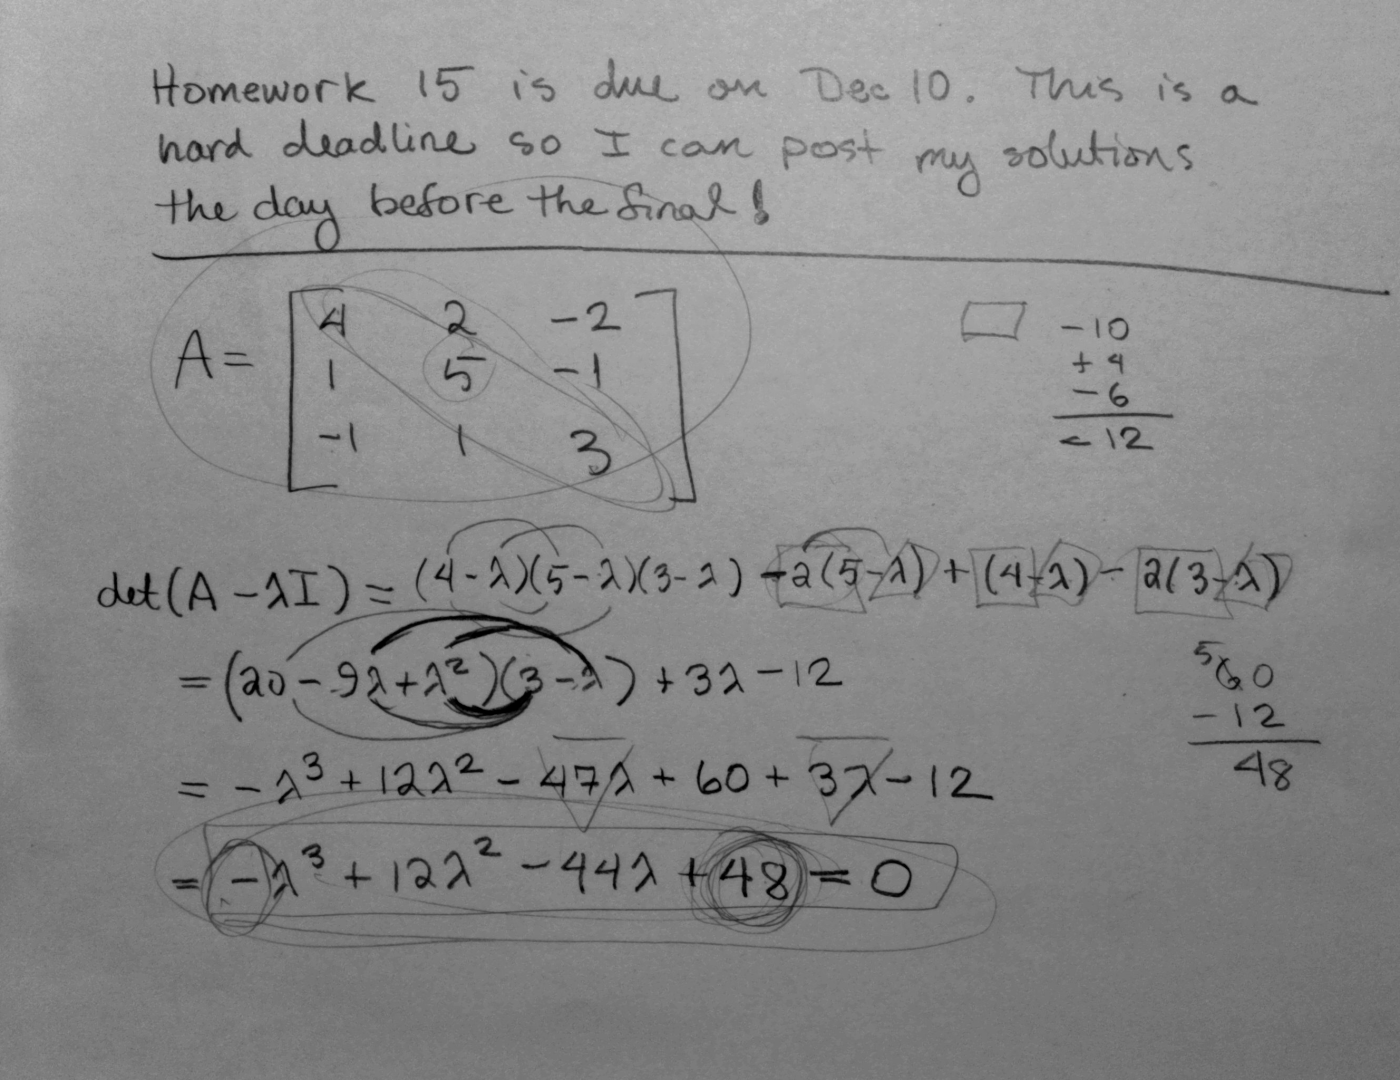 Homework 15 is due on Dec 10. This is a
hard deadline so I can post my solutions
the day before the final!
A = [ 4 2 -2
1 5 -1
-1 1 3 ]
-10
+4
-6
-12
det(A - λI) = (4-λ)(5-λ)(3-λ) -2(5-λ) + (4-λ) - 2(3-λ)
= (20 - 9λ + λ²)(3-λ) + 3λ - 12
= -λ³ + 12λ² - 47λ + 60 + 3λ - 12
= -λ³ + 12λ² - 44λ + 48 = 0
5
60
-12
48